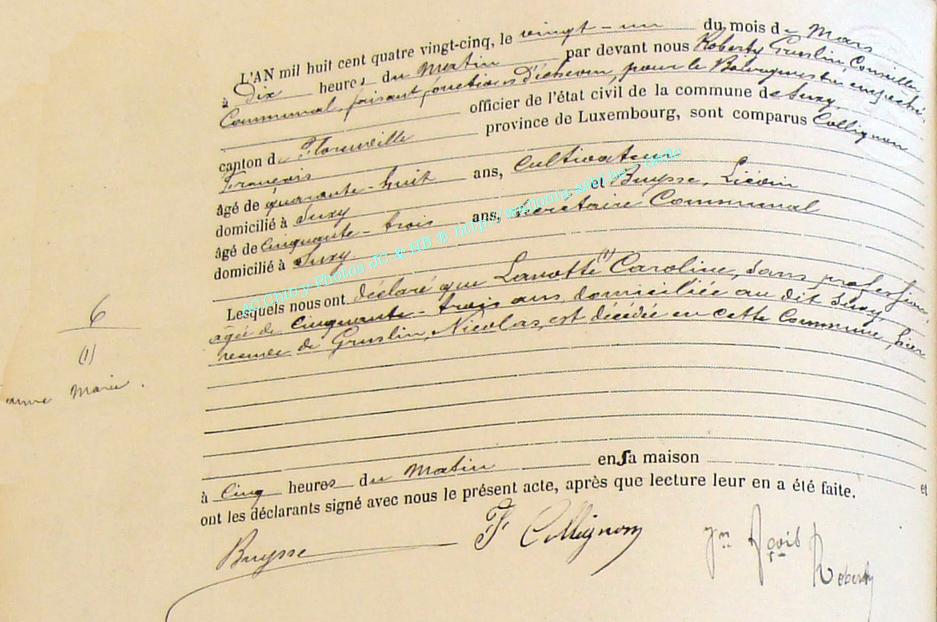 L'AN mil huit cent quatre vingt-cinq, le vingt-un du mois de Mars
à Dix heures du Matin par devant nous Roberty Gruslin, Conseiller
Communal, faisant fonctions d'échevin, pour le Bourgmestre empêché
officier de l'état civil de la commune de Suxy
canton de Florenville province de Luxembourg, sont comparus Collignon
François
âgé de quarante-huit ans, Cultivateur
domicilié à Suxy et Buysse, Liévin
âgé de Cinquante-trois ans, Secrétaire Communal
domicilié à Suxy
Lesquels nous ont déclaré que Lanotte (1) Caroline, sans profession,
âgée de cinquante-trois ans, domiciliée au dit Suxy
veuve de Gruslin, Nicolas, est décédée en cette Commune, hier
6
(1)
Marie.
à Cinq heures du Matin en sa maison et
ont les déclarants signé avec nous le présent acte, après que lecture leur en a été faite.
Buysse F Collignon Roberty